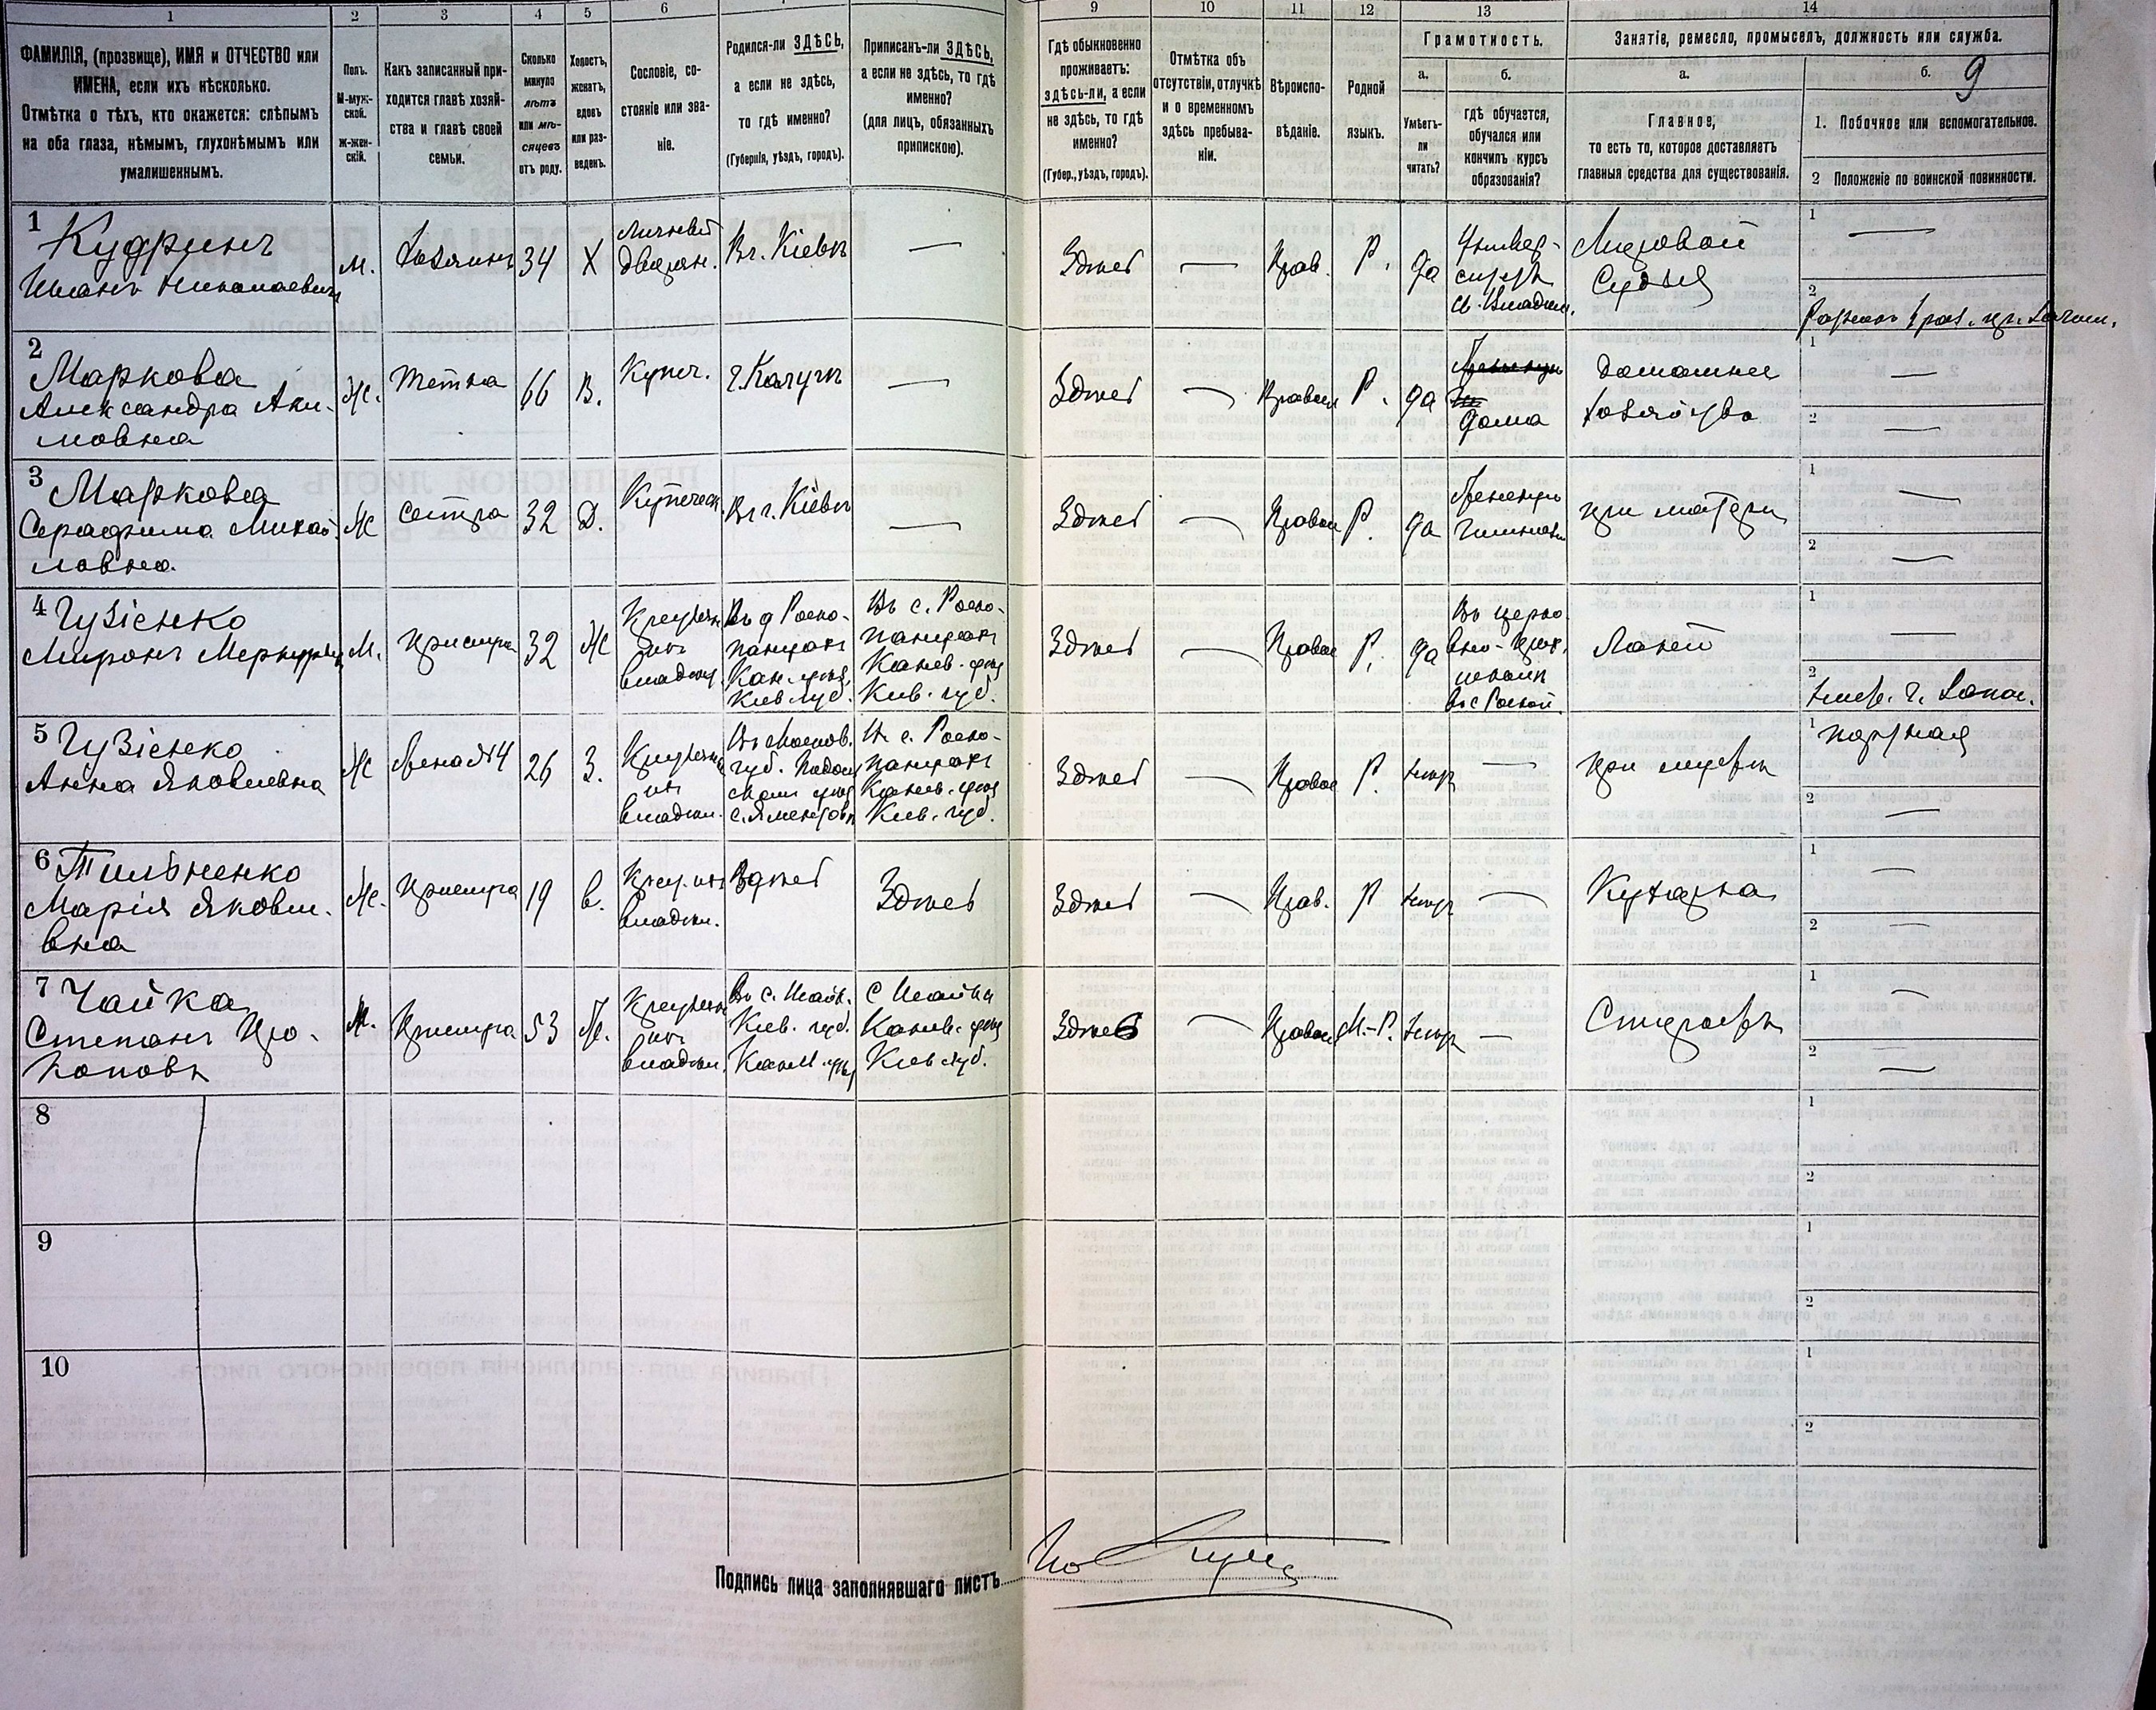 1 2 3 4 5 6 9 10 11 12 13 14
ФАМИЛІЯ, (прозвище), ИМЯ и ОТЧЕСТВО или ИМЕНА, если ихъ нѣсколько.
Отмѣтка о тѣхъ, кто окажется: слѣпымъ на оба глаза, нѣмымъ, глухонѣмымъ или умалишеннымъ.
Полъ. М-муж-ской. ж-жен-скій.
Какъ записанный при-ходится главѣ хозяй-ства и главѣ своей семьи.
Сколько минуло лѣтъ или мѣ-сяцевъ отъ роду.
Холостъ, женатъ, вдовъ или раз-веденъ.
Сословіе, со-стояніе или зва-ніе.
Родился-ли ЗДѢСЬ, а если не здѣсь, то гдѣ именно?
(Губернія, уѣздъ, городъ).
Приписанъ-ли ЗДѢСЬ, а если не здѣсь, то гдѣ именно?
(для лицъ, обязанныхъ припискою).
Гдѣ обыкновенно проживаетъ: здѣсь-ли, а если не здѣсь, то гдѣ именно?
(Губер., уѣздъ, городъ).
Отмѣтка объ отсутствіи, отлучкѣ и о временномъ здѣсь пребыва-ніи.
Вѣроиспо-вѣданіе.
Родной языкъ.
Грамотность.
а. Умѣетъ-ли читать?
б. гдѣ обучается, обучался или кончилъ курсъ образованія?
Занятіе, ремесло, промыселъ, должность или служба.
а. Главное, то есть то, которое доставляетъ главныя средства для существованія.
б. 9
1. Побочное или вспомогательное.
2 Положеніе по воинской повинности.
1 Кудринъ
Иванъ Николаевичъ
м. Хозяинъ 34 Х
личный
дворян.
Въ г. Кіевѣ —
Здѣсь — Прав. Р. да
Универ-
ситетъ
св. Владим.
Мировой
Судья
1 —
2
2
Маркова
Александра Аки-
мовна
Ж. Тетка 66 В. Купеч. г. Калугѣ —
Здѣсь — Правосл Р. да
дома
Домашнее
хозяйство
1 —
2 —
3 Маркова
Серафима Михай-
ловна.
Ж Сестра 32 Д. Купеческ. Въ г. Кіевѣ —
Здѣсь — Правосл Р. да
при матери
1 —
2 —
4 Гузіенко
Миронъ
М. Прислуга 32 Ж
Крестьян
изъ
владѣл.
Кан. уѣзд.
Кіев губ.
Въ с.
Канев. уѣзд
Кіев. губ.
Здѣсь — Правос Р. да
Въ церко-
вно-прих.
школѣ
Лакей
1 —
2
5 Гузіенко
Анна Яковлевна
Ж Жена №4 26 З.
Крестьян
изъ
владѣл.
Въ Москов.
губ. Подол
Въ с.
Канев. уѣзд
Кіев. губ.
Здѣсь — Правос Р. негр —
при мужѣ
1 портная
2 —
6 Тильненко
Марія Яковл.
вна
Ж. Прислуга 19 в.
Крест. изъ
владѣл.
Здѣсь Здѣсь
Здѣсь — Прав. Р негр — Кухарка
1 —
2 —
7 Чайка
Степанъ Про-
коповъ
М. Прислуга 53 Ж.
Крестьян
изъ
владѣл.
Кіев. губ.
Канев. уѣзд
Канев. уѣзд
Кіев губ.
Здѣсь — Правосл М.-Р. негр —
1 —
2 —
8 1
2
9 1
2
10 1
2
Подпись лица заполнявшаго листъ